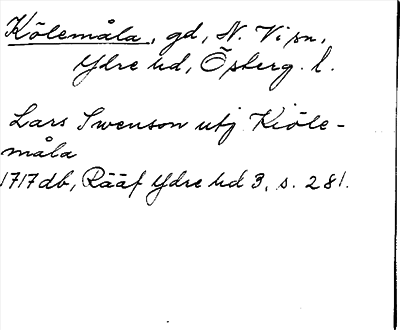 Kölemåla, gd, N. Vi sn,
Ydre hd, Österg. l.
Lars Swenson utj Kiöle-
måla
1717 db, Rääf Ydre hd 3, s. 281.